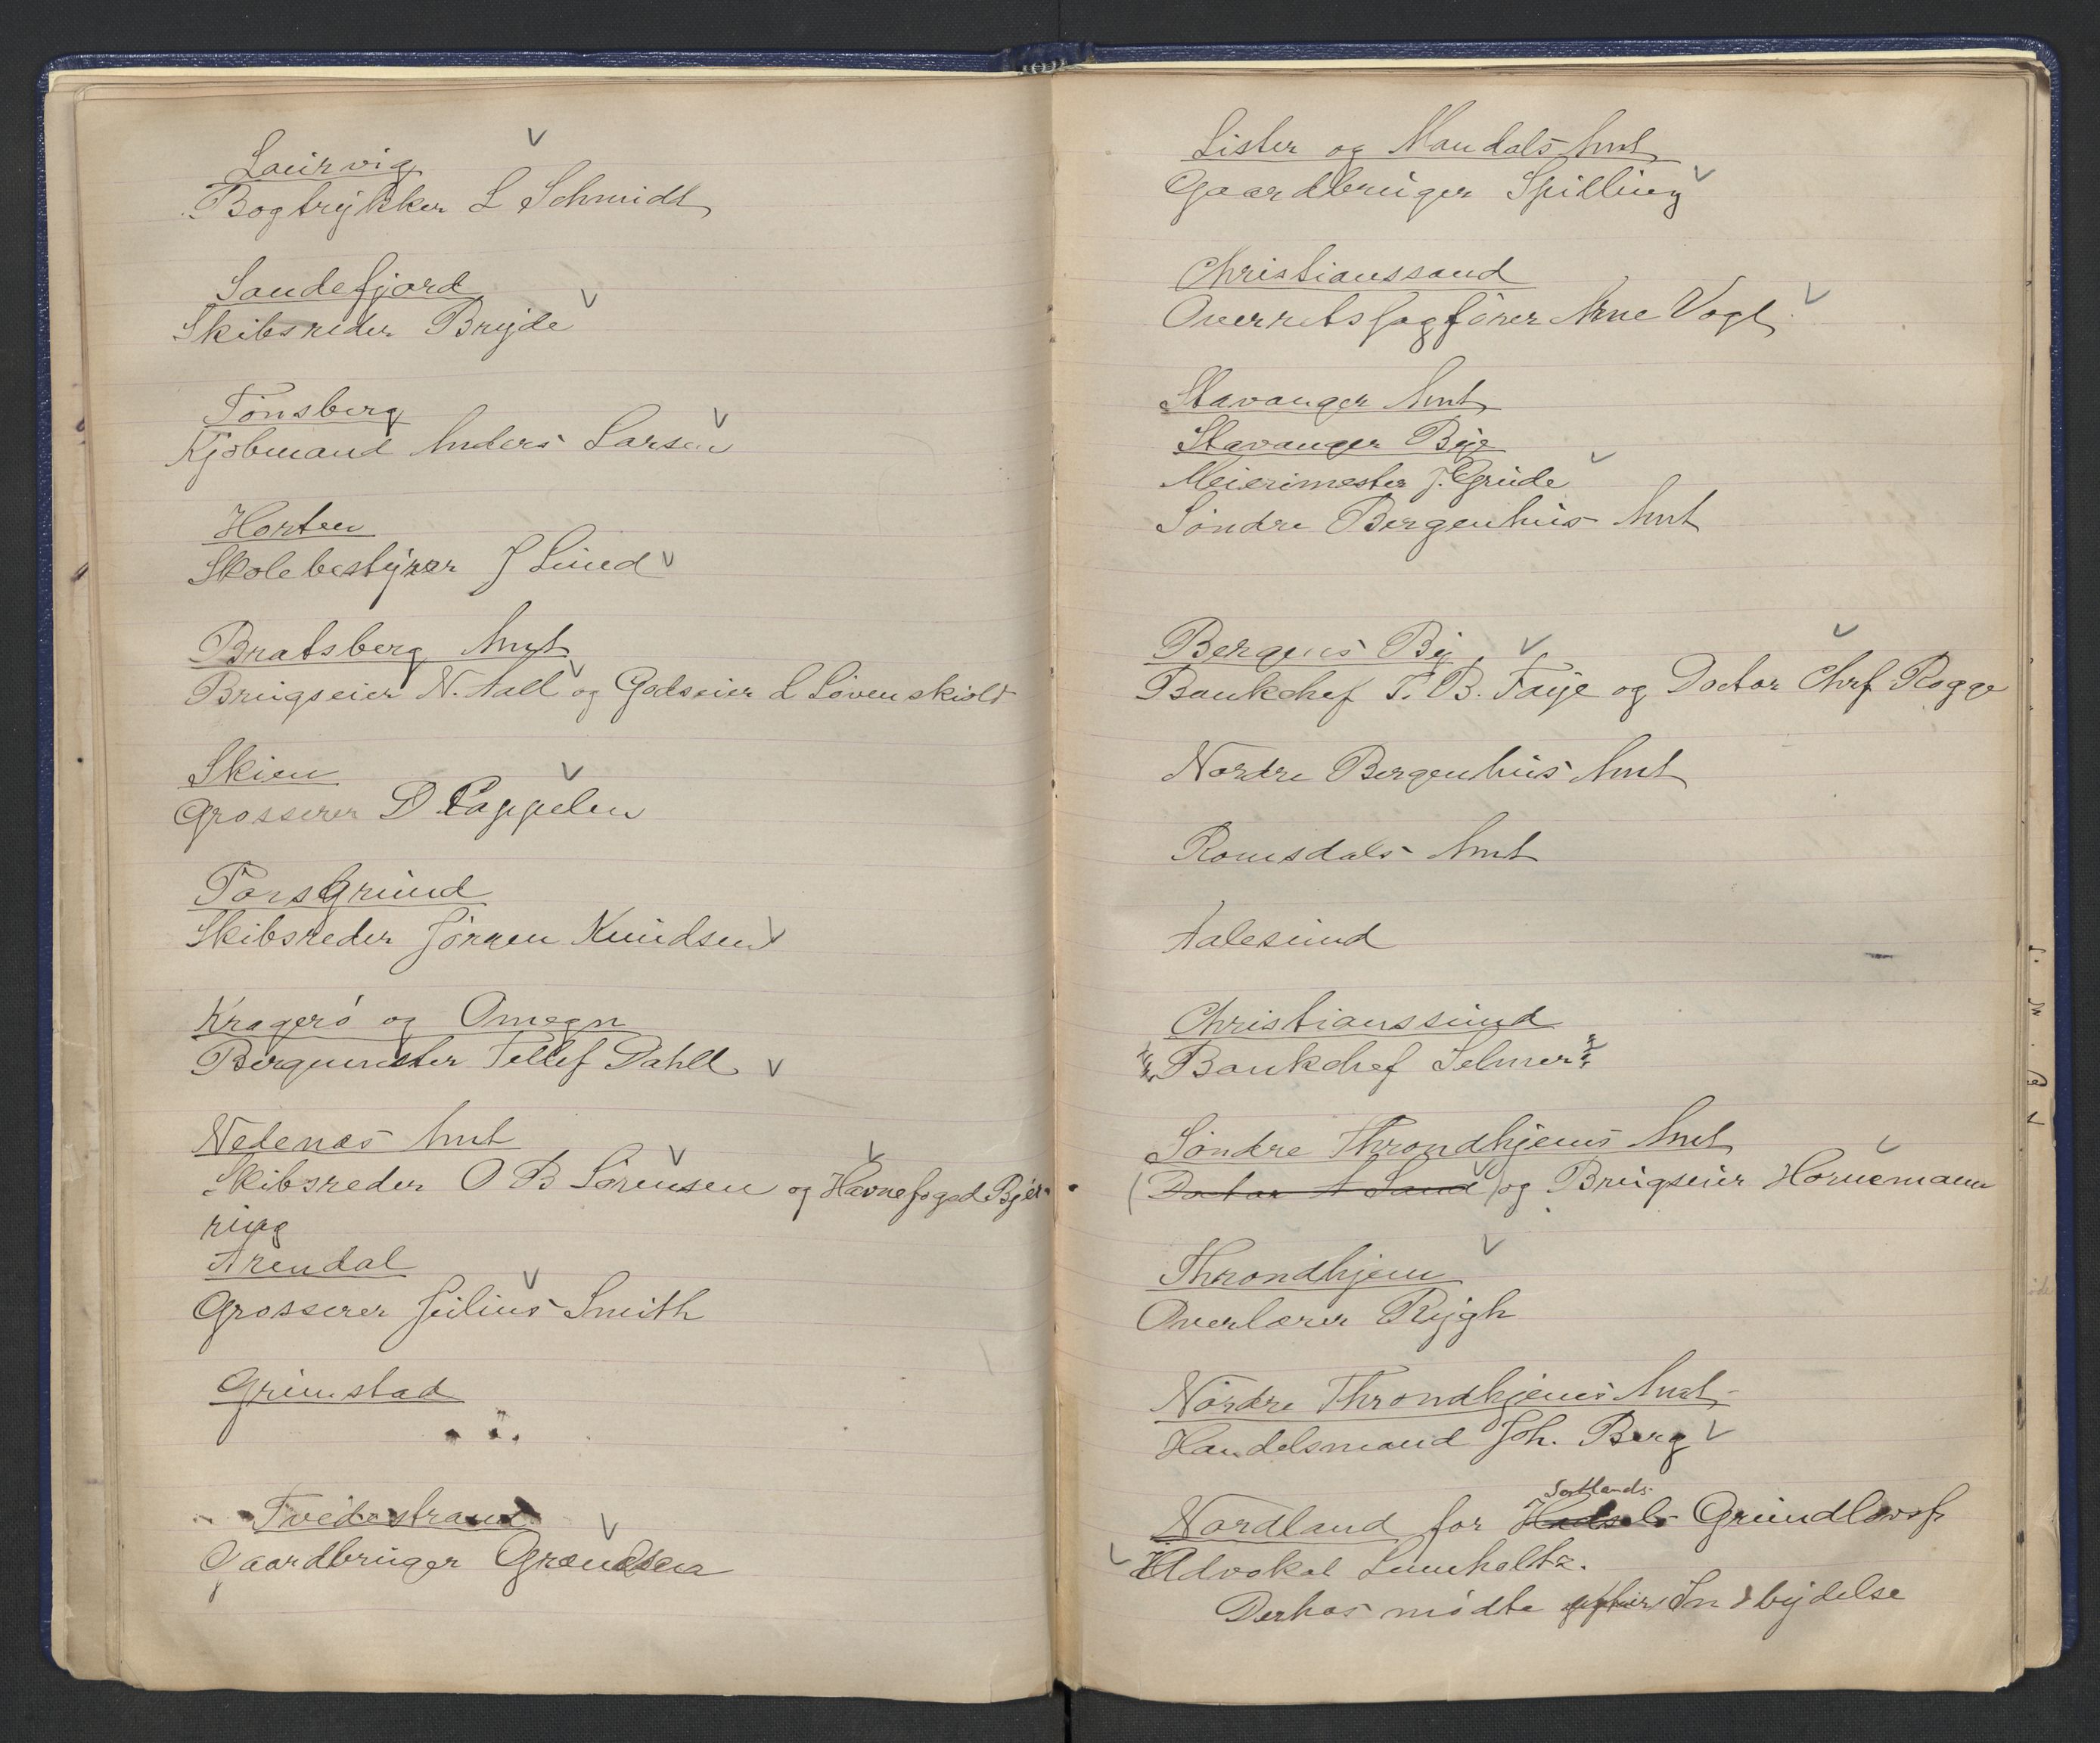 Laurvig
Bogtrykker L Schmidt
Sandefjord
Skibsreder Bryde
Tönsberg
Kjöbmand Anders Larsen
Horten
Skolebestyrer J Lund
Bratsberg Amt
Brugseier N. Aall og Godseier L Lövenskiold
Skien
Grosserer D Cappelen
Porsgrund
Skibsreder Jörgen Knudsen
Kragerö og Omegn
Bergmester Tellef Dahll
Nedenæs Amt
Skibsreder O B Sörensen og Havnefogd Bjer-
ring
Arendal
Grosserer Julius Smith
Grimstad
Tvedestrand
Gaardbruger Grændsen
Lister og Mandals Amt
Gaardbruger Spilling
Christianssand
Overretssagförer Arne Vogt
Stavanger Amt
Stavanger By
Meierimester J. Grude
Söndre Bergenhus Amt
Bergens By
Bankchef F. B. Faye og Doctor Chrf Rogge
Nordre Bergenhus Amt
Romsdals Amt
Aalesund
Christianssund
Bankchef Selmer
Söndre Throndhjems Amt
(Doctor A Sand) og Brugseier Hornemann
Throndhjem
Overlærer Rygh
Nordre Throndhjems Amt
Handelsmand Joh. Berg
Sortlands
Nordland for Hadsels Grundlovsf
Advokat Lumholtz.
Derhos mödte efter Indbydelse